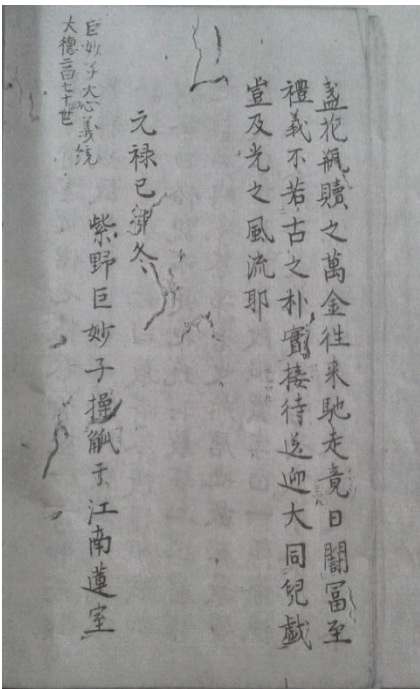 盞花瓶贖之萬金徃来馳走竟日鬪冨至
禮義不若古之朴實接待送迎大同兒戯
豈及光之風流耶
元禄已卯冬
紫野巨妙子操觚于江南蓮室
巨妙子大心義統
大德二百七十世